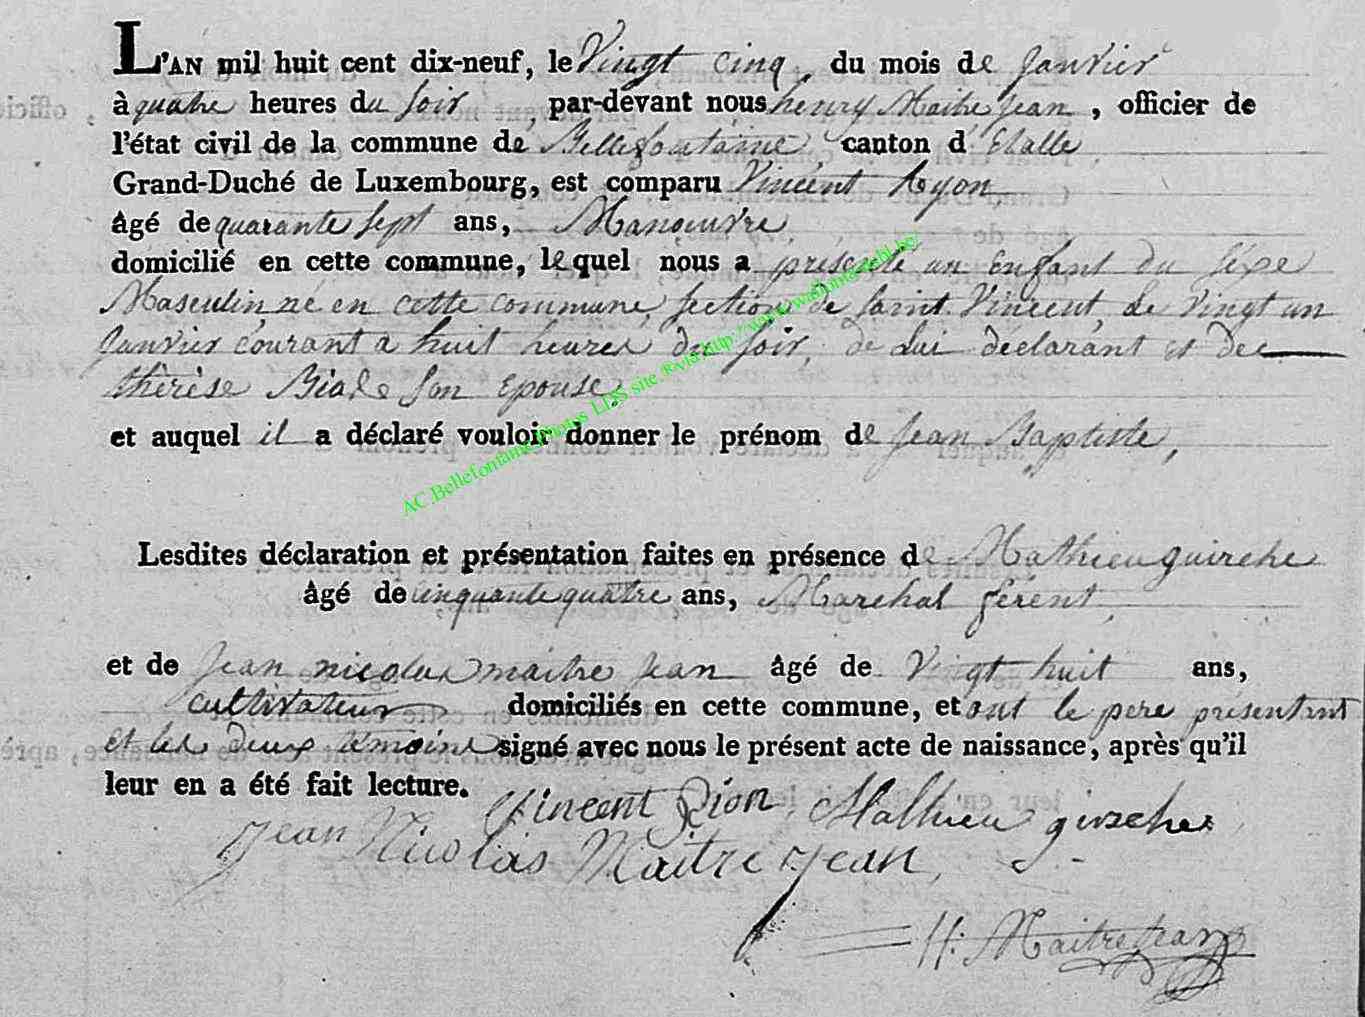 L'AN mil huit cent dix-neuf, le Vingt cinq du mois de Janvier
à quatre heures du soir par-devant nous henry Maitre Jean, officier de
l'état civil de la commune de Bellefontaine canton d'Etalle
Grand-Duché de Luxembourg, est comparu Vincent
âgé de quarante sept ans, Manouvre
domicilié en cette commune, lequel nous a presenté un Enfant du sexe
Masculin né en cette commune, section de saint Vincent, le vingt un
Janvier courant a huit heures du soir, de lui déclarant et de
thérèse son Epouse,
et auquel il a déclaré vouloir donner le prénom de Jean Baptiste,
AC Bellefontaine Photos LDS site
Lesdites déclaration et présentation faites en présence de Mathieu guirche
âgé de cinquante quatre ans, Marchal ferent,
et de Jean nicolas maitre Jean âgé de Vingt huit ans,
cultivateur domiciliés en cette commune, et ont le pere presentant
et les deux témoins signé avec nous le présent acte de naissance, après qu'il
leur en a été fait lecture.
Vincent Gion, Mathieu girche
Jean Nicolas Maitre jean,
H: MaitreJean